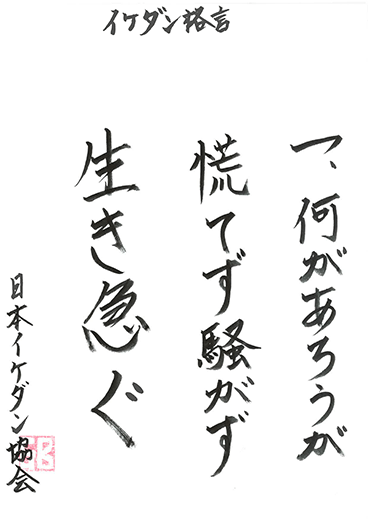 イケダン格言
一、何があろうが
慌てず騒がず
生き急ぐ
日本イケダン協会